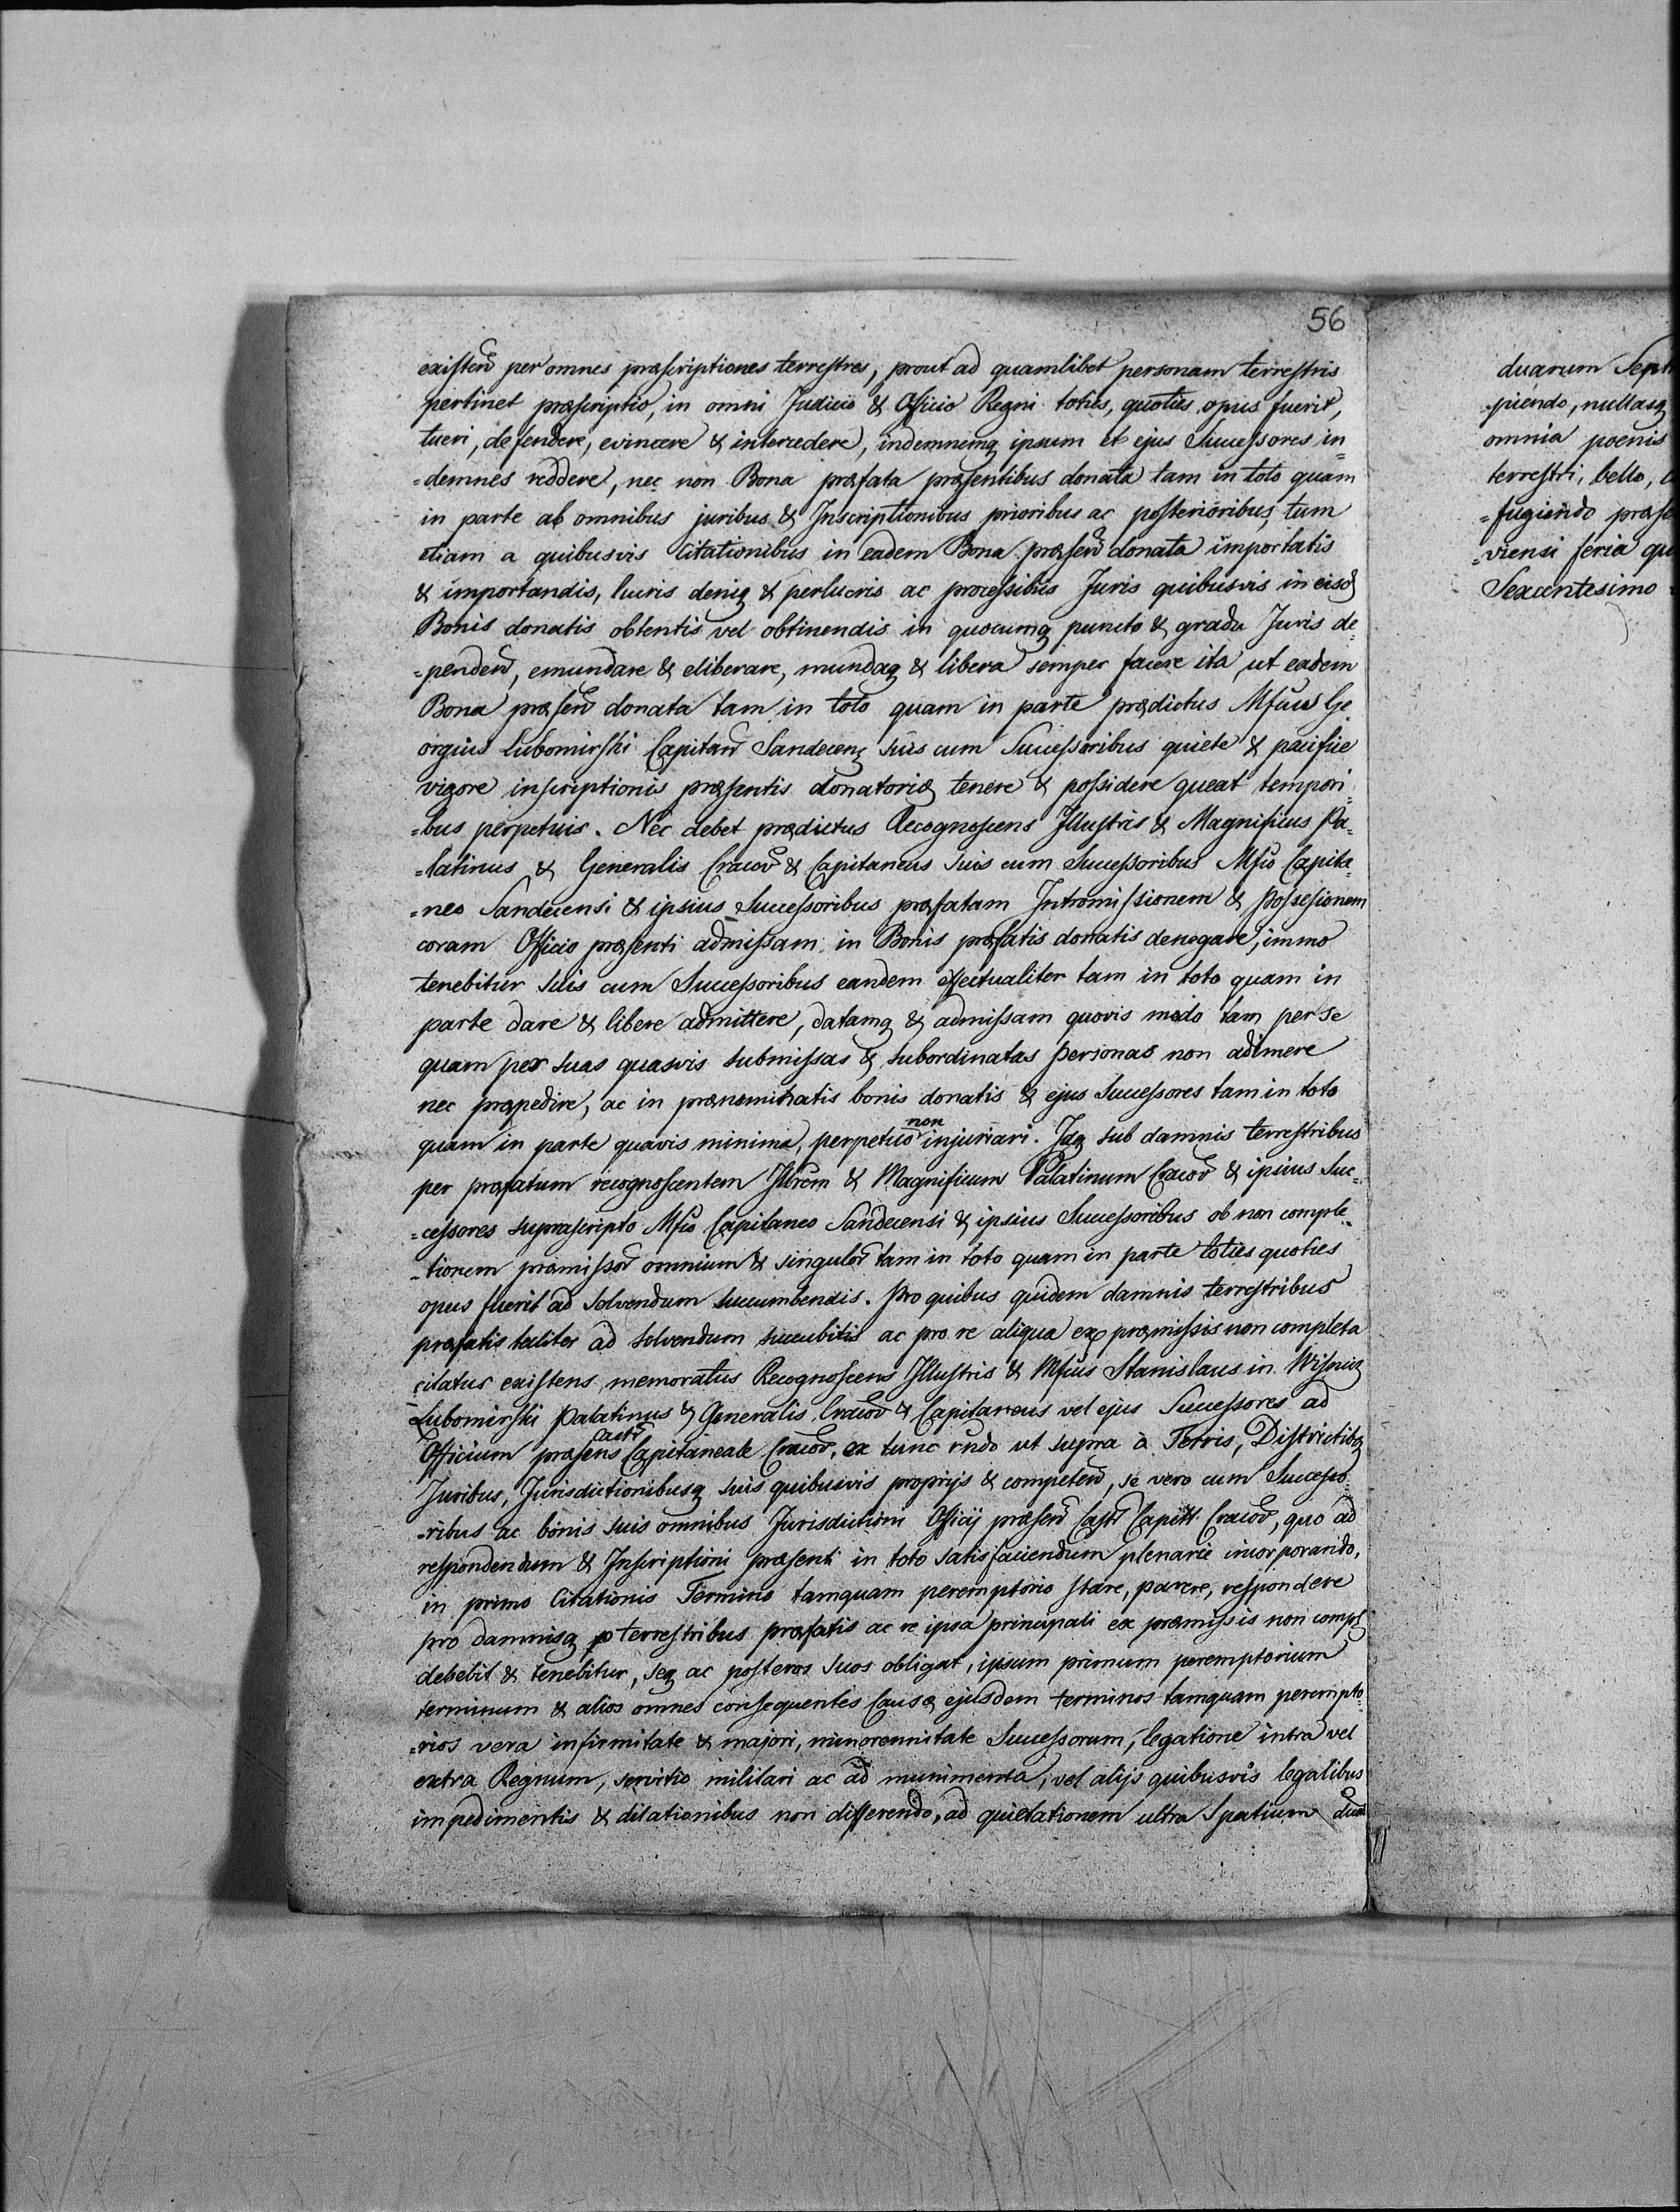 56
existen per omnes præscriptiones terrestres, prout ad quamlibet personam terrestris
pertinet præscriptio, in omni Judicio & Officio Regni toties, quoties opus fuerit,
tueri, defendere, evincere & intercedere, indemnemq ipsum et ejus Successores in=
=demnes reddere, nec non Bona præfata præsentibus donata tam in toto quam
in parte ab omnibus juribus & Inscriptionibus prioribus ac posterioribus, tum
etiam a quibusvis Citationibus in eadem Bona præsen donata importatis
& importandis, lucris deniq & perlucris ac processibus Juris quibusvis in eisd
Bonis donatis obtentis vel obtinendis in quocumq puncto & gradu Juris de=
=penden, emundare & eliberare, mundaq & libera semper facere ita, ut eadem
Bona præsen donata tam in toto quam in parte prædictus Mfcus Ge
orgius Lubomirski Capitan Sandecen suis cum Successoribus quiete & pacifice
vigore inscriptionis præsentis donatoriæ tenere & possidere queat tempori=
=bus perpetuis. Nec debet prædictus Recognoscens Illustris & Magnificus Pa=
=latinus & Generalis Cracov & Capitaneus suis cum Successoribus Mfco Capita=
=neo Sandecensi & ipsius Successoribus præfatam Intromissionem & Possesionem
coram Officio præsenti admissam in Bonis præfatis donatis denegare, immo
tenebitur suis cum Successoribus eandem effectualiter tam in toto quam in
parte dare & libere admittere, datamq & admissam quovis modo tam per se
quam per suas quasvis submissas & subordinatas personas non adimere
nec præpedire, ac in prænominatis bonis donatis & ejus Successores tam in toto
quam in parte quavis minima, perpetuo non injuriari. Idq sub damnis terrestribus
per præfatum recognoscentem Illrem & Magnificum Palatinum Cracov & ipsius Suc=
=cessores suprascripto Mfco Capitaneo Sandecensi & ipsius Successoribus ob non comple=
=tionem præmissor omnium & singulor tam in toto quam in parte toties quoties
opus fuerit ad solvendum succumbendis. Pro quibus quidem damnis terrestribus
præfatis taliter ad solvendum succubitis ac pro re aliqua ex præmissis non completa
citatus existens, memoratus Recognoscens Illustris & Mfcus Stanislaus in Wisnicz
Lubomirski Palatinus & Generalis Cracov & Capitaneus vel ejus Successores ad
Officium præsens Castr Capitaneale Cracov, ex tunc rndo ut supra à Terris, Districtibq
Juribus, Jurisdictionibusq suis quibusvis proprijs & competen, se vero cum Successo=
=ribus ac bonis suis omnibus Jurisdictioni Officij præsen Castr Capitt Cracov, quo ad
respondendum & Inscriptioni præsenti in toto satisfaciendum plenarie incorporando,
in primo Citationis Termino tamquam peremptorio stare, parere, respondere
pro damnisq terrestribus præfatis ac re ipsa principali ex præmissis non compl
debebit & tenebitur, seq ac posteros suos obligat, ipsum primum peremptorium
terminum & alios omnes consequentes Causæ ejusdem terminos tamquam perempto=
=rios vera infirmitate & majori, minorennitate Successorum, legatione intra vel
extra Regnum, servitio militari ac ad munimenta, vel alijs quibusvis legalibus
impedimentis & dilationibus non differendo, ad quietationem ultra Spatium
duarum Sept
piendo, nullasq
omnia poenis
terrestri, bello,
=fugiendo præse
=viensi feria qu
Sexcentesimo